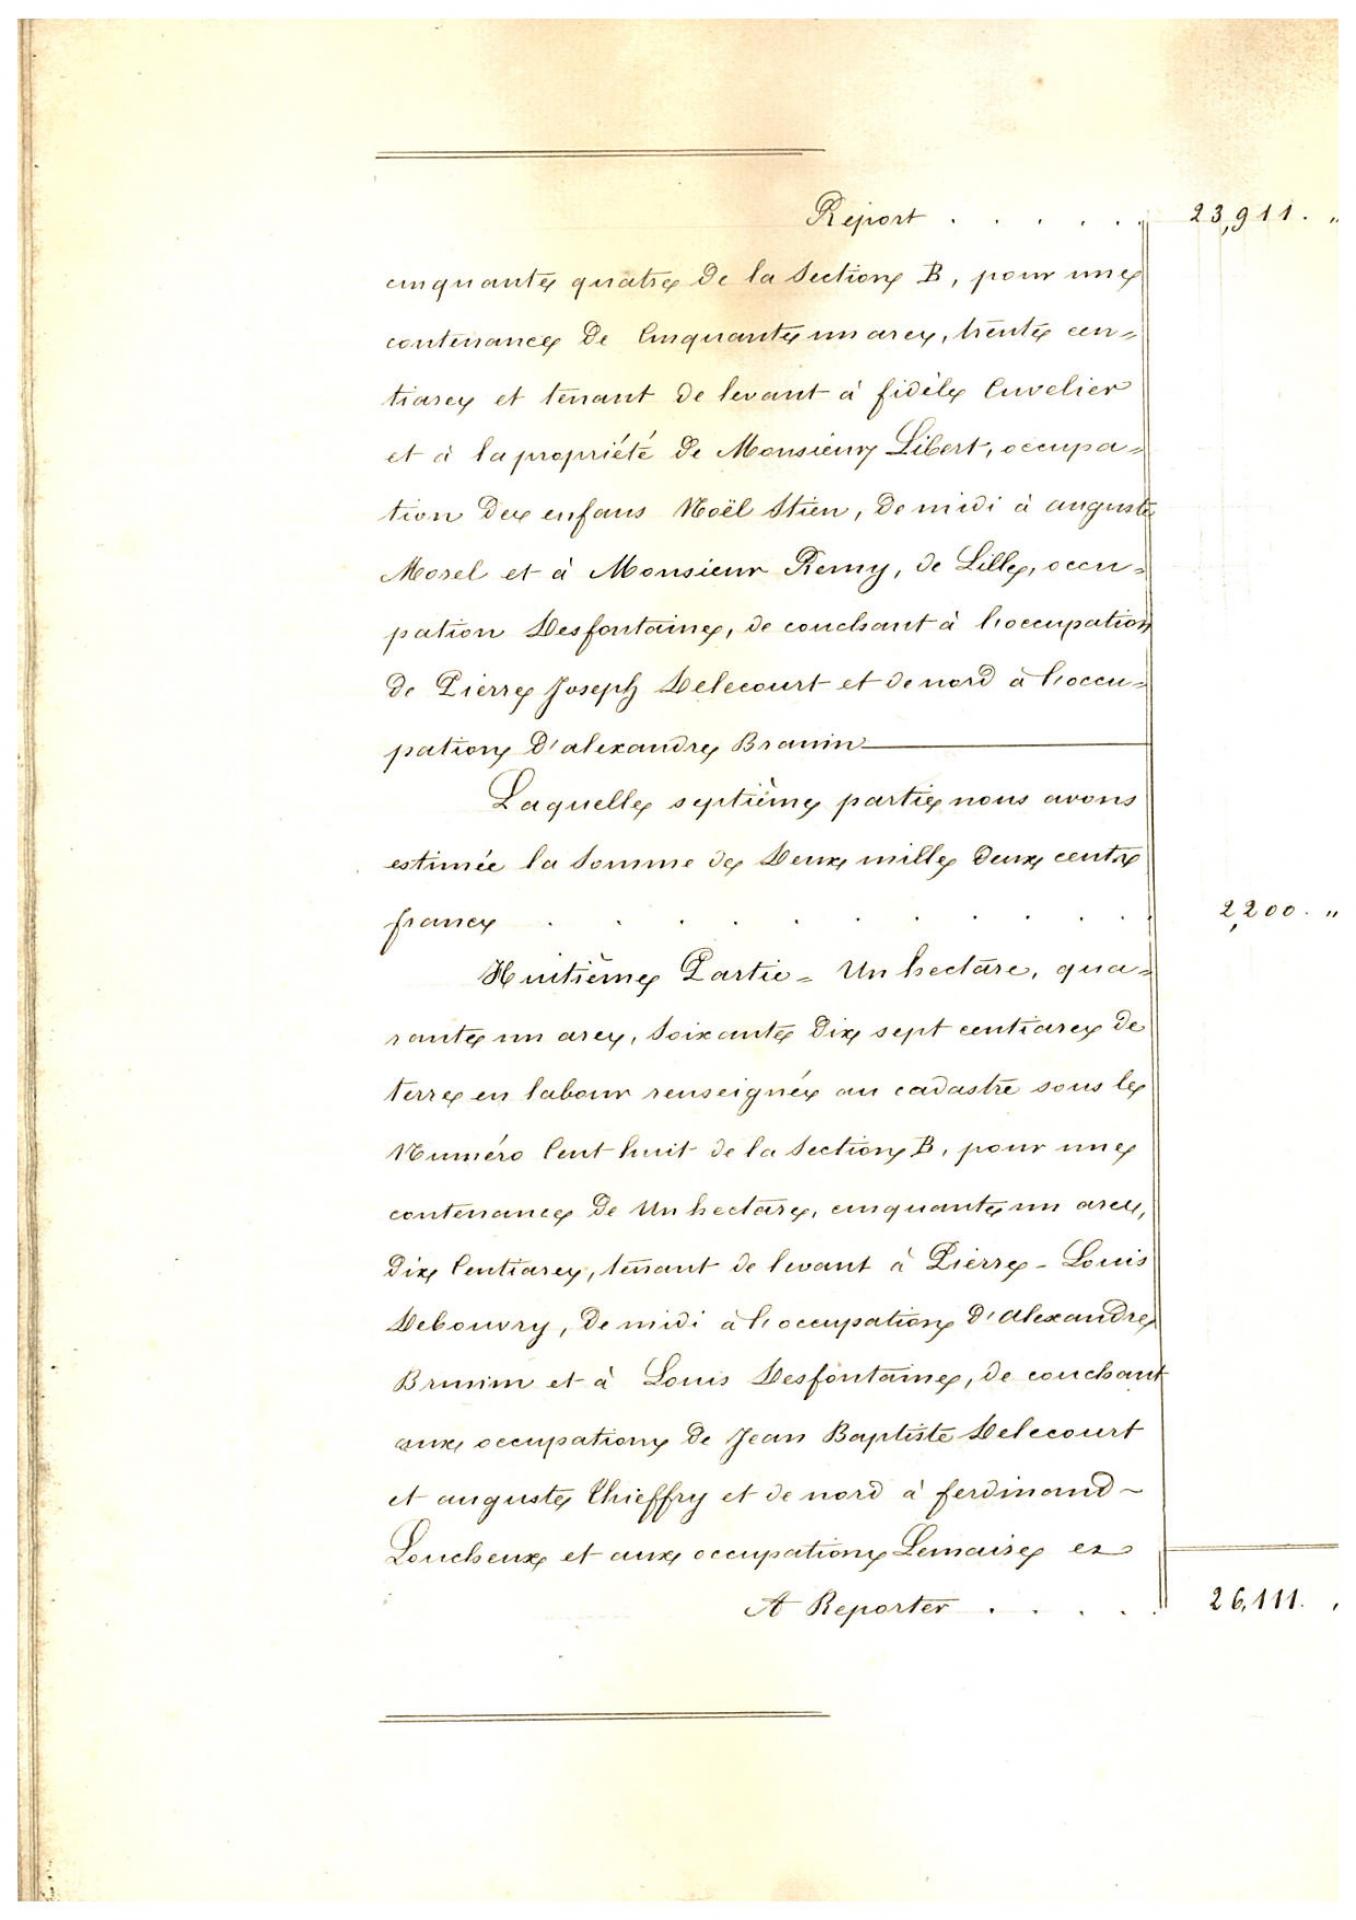 Report . . . . . 23,911. "
cinquante quatre de la Section B, pour une
contenance de Cinquante un ares, trente cen=
tiares et tenant de levant à fidèle Cuvelier
et à la propriété de Monsieur Libert, occupa=
tion des enfans Noël Stien, de midi à auguste
Morel et à Monsieur Remy, de Lille, occu=
pation Desfontaine, de couchant à l'occupation
de Pierre Joseph Delecourt et de nord à l'occu=
pation d'alexandre Brunin
Laquelle septième partie nous avons
estimée la Somme de Deux mille deux cents
francs . . . . . . . . . . 2,200. "
Huitième Partie = Un hectare, qua=
rante un ares, Soixante dix sept centiares de
terre en labour renseignée au cadastre sous le
Numéro Cent huit de la Section B, pour une
contenance de Un hectare, cinquante un ares,
Dix Centiares, tenant de levant à Pierre - Louis
Debouvry, de midi à l'occupation d'Alexandre
Brunin et à Louis Desfontaine, de couchant
aux occupations de Jean Baptiste Delecourt
et auguste Thieffry et de nord à ferdinand -
Loucheux et aux occupations Lemaire et
A Reporter . . . . 26,111. "